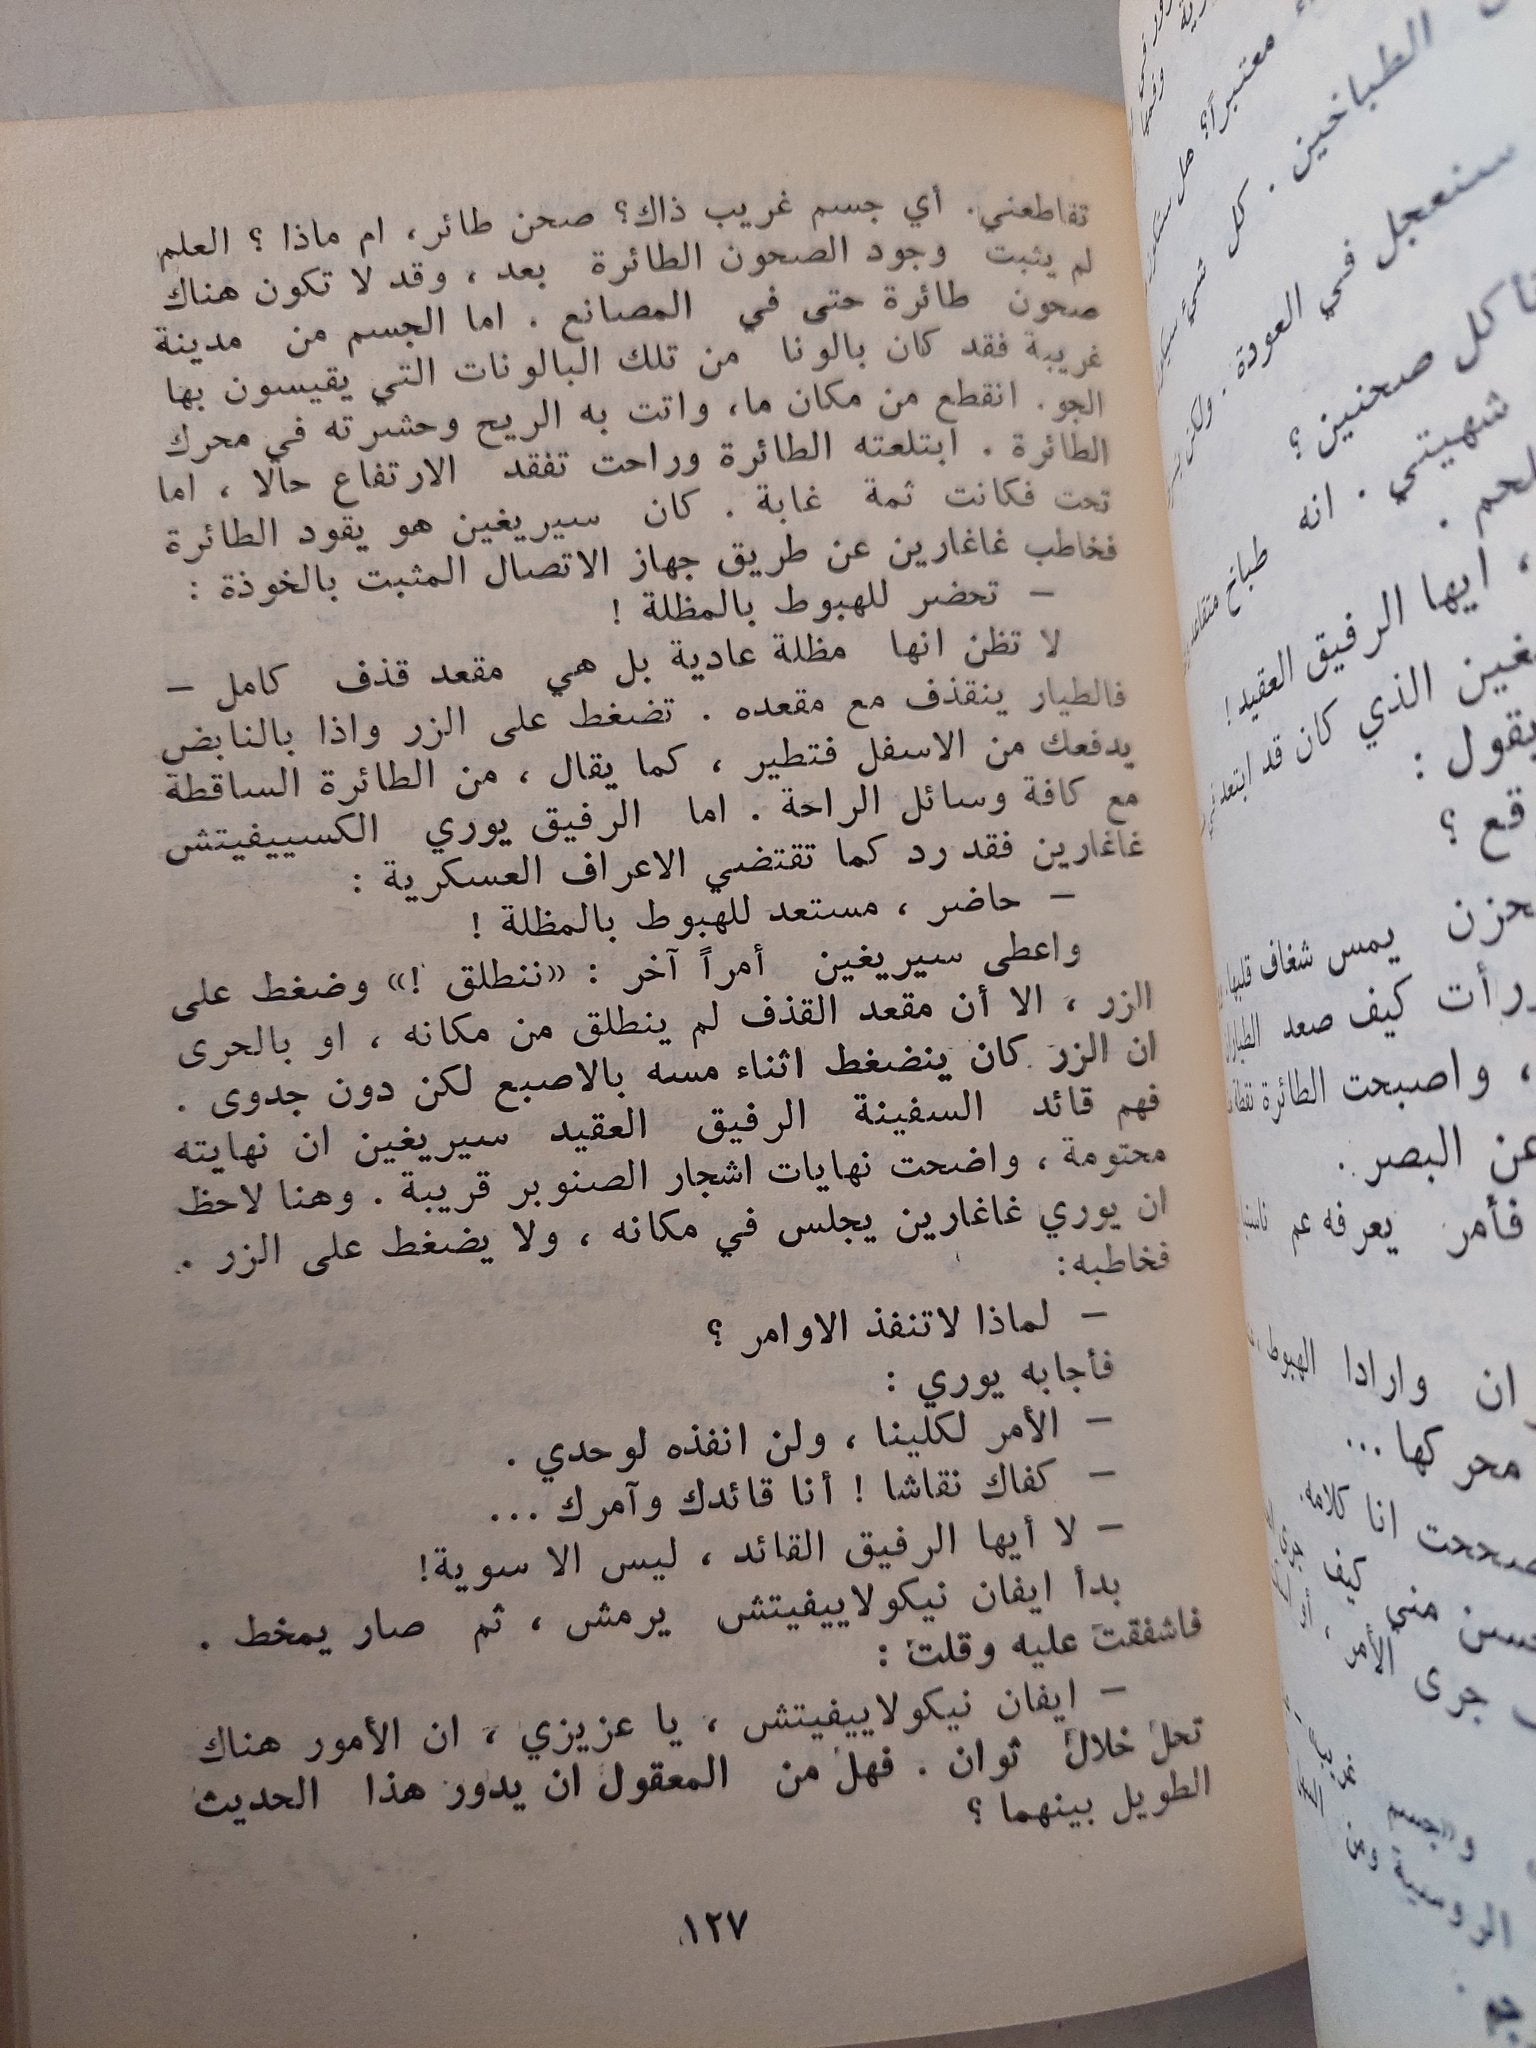 تقاطعني. أي جسم غريب ذاك؟ صحن طائر، ام ماذا ؟ العلم
لم يثبت وجود الصحون الطائرة بعد ، وقد لا تكون هناك
صحون طائرة حتى في المصانع . اما الجسم من مدينة
غريبة فقد كان بالونا من تلك البالونات التي يقيسون بها
الجو. انقطع من مكان ما، واتت به الريح وحشرته في محرك
الطائرة . ابتلعته الطائرة وراحت تفقد الارتفاع حالا ، اما
تحت فكانت ثمة غابة . كان سيريغين هو يقود الطائرة
فخاطب غاغارين عن طريق جهاز الاتصال المثبت بالخوذة :
– تحضر للهبوط بالمظلة !
لا تظن انها مظلة عادية بل هي مقعد قذف كامل –
فالطيار ينقذف مع مقعده . تضغط على الزر واذا بالنابض
يدفعك من الاسفل فتطير ، كما يقال ، من الطائرة الساقطة
مع كافة وسائل الراحة . اما الرفيق يوري الكسييفيتش
غاغارين فقد رد كما تقتضي الاعراف العسكرية :
– حاضر ، مستعد للهبوط بالمظلة !
واعطى سيريغين أمراً آخر : «ننطلق !» وضغط على
الزر ، الا أن مقعد القذف لم ينطلق من مكانه ، او بالحرى
ان الزر كان ينضغط اثناء مسه بالاصبع لكن دون جدوى .
فهم قائد السفينة الرفيق العقيد سيريغين ان نهايته
محتومة ، واضحت نهايات اشجار الصنوبر قريبة . وهنا لاحظ
ان يوري غاغارين يجلس في مكانه ، ولا يضغط على الزر .
فخاطبه:
– لماذا لاتنفذ الاوامر ؟
فأجابه يوري :
– الأمر لكلينا ، ولن انفذه لوحدي .
– كفاك نقاشا ! أنا قائدك وآمرك ...
– لا أيها الرفيق القائد ، ليس الا سوية!
بدأ ايفان نيكولاييفيتش يرمش ، ثم صار يمخط .
فاشفقت عليه وقلت :
– ايفان نيكولاييفيتش ، يا عزيزي ، ان الأمور هناك
تحل خلال ثوان . فهل من المعقول ان يدور هذا الحديث
الطويل بينهما ؟
١٢٧
معتبراً؟ هل
الطباخين . كل شيء
سنعجل في العودة .
كل صحنين ؟
شهيتي . انه طباخ متقاعد
، ايها الرفيق العقيد!
الذي كان قد ابتعد
يقول :
يمس شغاف قلبها
كيف صعد
، واصبحت الطائرة
عن البصر .
فأمر يعرفه عم
وارادا الهبوط
محركها ...
انا كلامه.
مني كيف
جرى الأمر